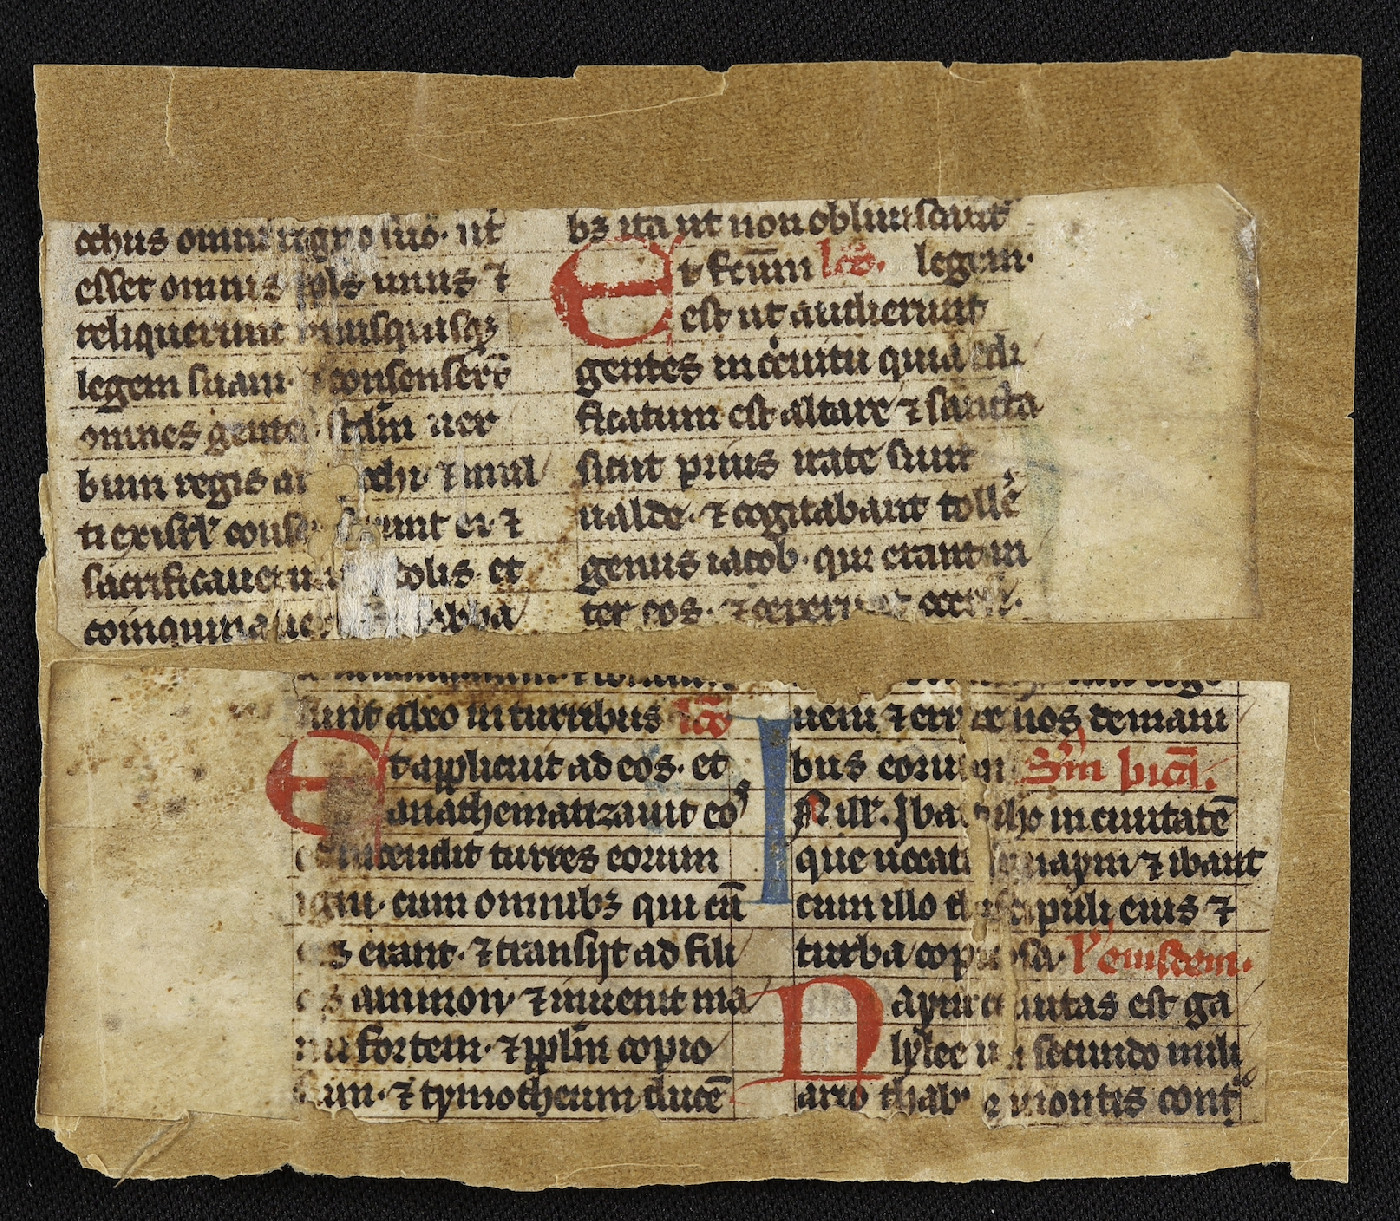 ochus omni regno suo· ut
esset omnis ppls unus ⁊
reliquerunt unusquisqȝ
legem suam· ⁊ consenserūt
omnes gentes· scdm uer
bum regis an ochi· ⁊ mul
ti ex isrl conse serunt ei· ⁊
sacrificauerunt dolis· et
coinquinauer abba
bȝ ita ut non obliuiscant
Et factum lcō. legem·
est ut audierunt
gentes in circuitu quia edi
ficatum est altare ⁊ sancta
sicut prius irate sunt
ualde· ⁊ cogitabant tollere
genus iacob· qui erant in
ter eos· ⁊ ceperunt
sunt ab eo in turribus lcō
Et applicuit ad eos· et
anathematizauit eos
et incendit turres eorum
igni· cum omnibȝ qui cū
eis erant· ⁊ transijt ad fili
os ammon· ⁊ inuenit ma
nu fortem· ⁊ pplm copio
sum· ⁊ tymotheum ducē
uem ⁊ eripiet uos de mani
bus eorum Sm lucā.
In ill. Ibat ihc in ciuitatē
que uocatur naym ⁊ ibant
cum illo discipuli eius ⁊
turba copiosa· eiusdem·
Naym ciuitas est ga
lylee in secundo mili
ario thabor montis contra